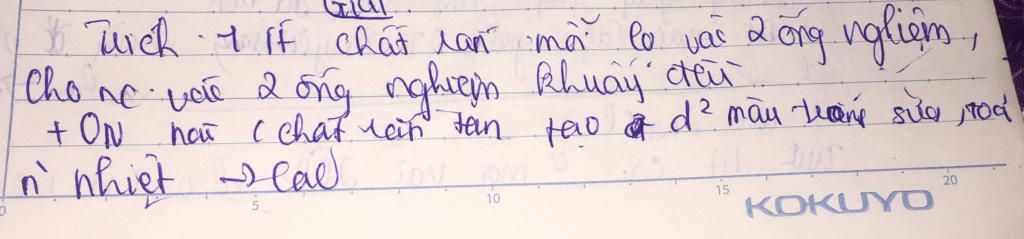 Giải
Trích 1 ít chất rắn mỗi lọ vào 2 ống nghiệm,
Cho nc vào 2 ống nghiệm khuấy đều
+ ÔN nào chất rắn tan tạo d² màu trắng sữa, toả
n' nhiệt → CaO
0 5 10 15 20
KOKUYO